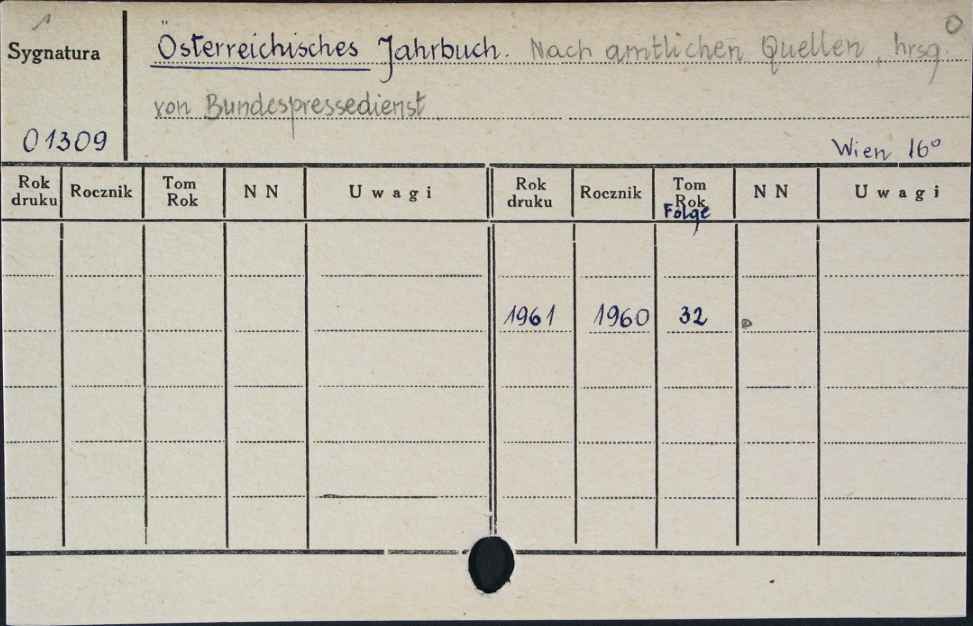 1 0
Sygnatura Österreichisches Jahrbuch. Nach amtlichen Quellen, hrsg.
von Bundespressedienst
01309 Wien 16°
Rok druku Rocznik Tom Rok N N Uwagi Rok druku Rocznik Tom Rok Folge N N Uwagi
1961 1960 32